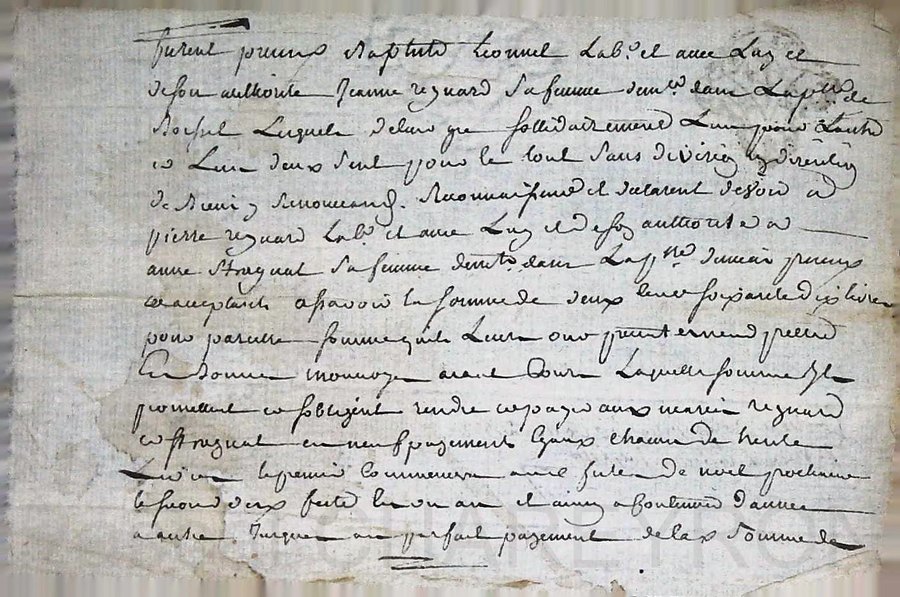 furent presens Baptiste Leonnel Lab.r et avec Luy et
de son authorité Jeanne regnard sa femme dem.te dans La p.sse de
Lesquels de leur gre sollidairement L'un pour L'autre
et L'un deux seul pour le tout sans division ny
de Biens y Renonceant. Reconnaissent et declarent devoir a
pierre regnard Lab.r et avec Luy et de son authorité a
anne stragnat sa femme dem.te dans La p.sse presens
et acceptants assavoir la somme de deux cents soixante dix livres
pour pareille somme quils Leurs ont presentement presté
En Bonne monnoye ayant Cours Laquelle somme Ils
promettent et sobligent rendre et payer aux mariés regnard
et stragnat en neuf payements Egaux chacun de trente
Livres le premier Commencera aux festes de noel prochaine
le second aux festes en un an et ainsy a Continuer d'année
a autre Jusques au parfait payement de la somme de